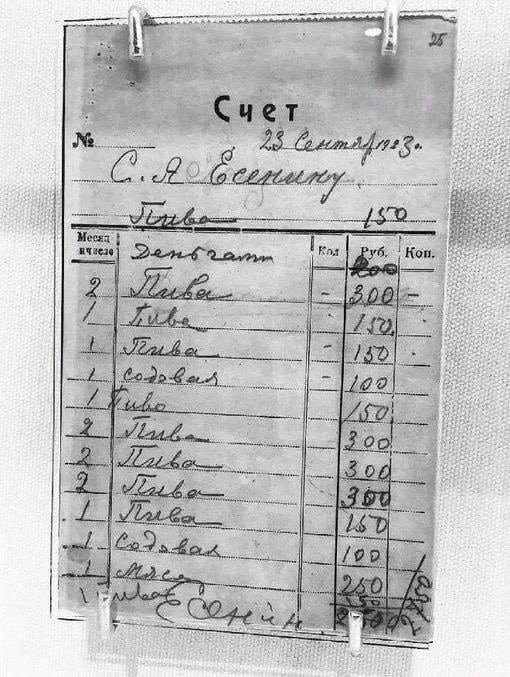 25
Счет
№ 23 Сентяр 1923г.
С. А Есенину
Пива 150
Месяц и число Деньгами Кол Руб. Коп.
200
2 Пива - 300 -
1 Пива 150
1 Пива - 150
1 содовая - 100
1 Пиво 150
2 Пива 300
2 Пива 300
2 Пива 300
1 Пива 150
1 Содовая 100
1 мясо 250
1 Пиво 150
Есенин